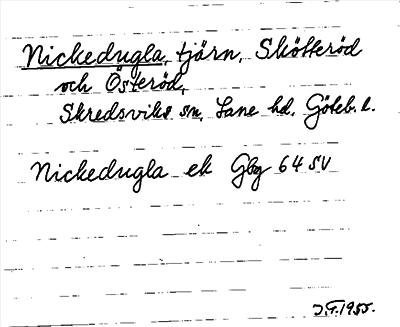 Nickedugla, tjärn, Skötteröd
och Österöd,
Skredsviks sn, Lane hd, Göteb. l.
Nickedugla ek Gbg 64 SV
J.T. 1955.